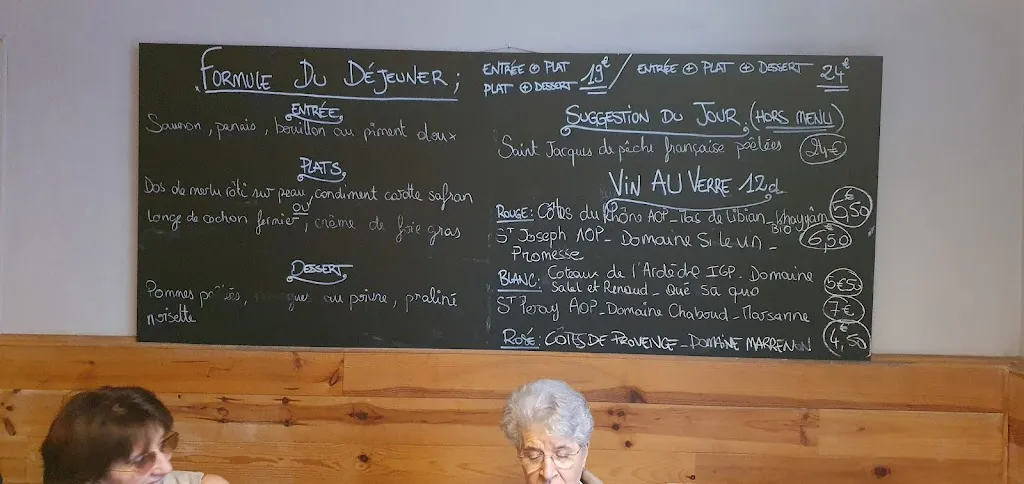 FORMULE DU DÉJEUNER ;
ENTRÉE
Saumon, panais, bouillon au piment doux
PLATS
Dos de merlu rôti sur peau, condiment carotte safran
ou
longe de cochon fermier, crème de foie gras
DESSERT
Pommes au poivre, praliné
noisette
ENTRÉE + PLAT
PLAT + DESSERT 19€ / ENTRÉE + PLAT + DESSERT 24€
SUGGESTION DU JOUR (HORS MENU)
Saint Jacques de pêche française poêlées 24€
VIN AU VERRE 12cl
ROUGE : Côtes du Rhône AOP - Mas de Libian - Khayyâm 5€50
BIO
ST Joseph AOP - Domaine - 6,50
Promesse
BLANC : Coteaux de l'Ardèche IGP - Domaine
Salel et Renaud - Que sa quo 5€50
ST Peray AOP - Domaine Chaboud - Marsanne 7€
ROSÉ : CÔTES DE PROVENCE - DOMAINE MARRENON 4€,50